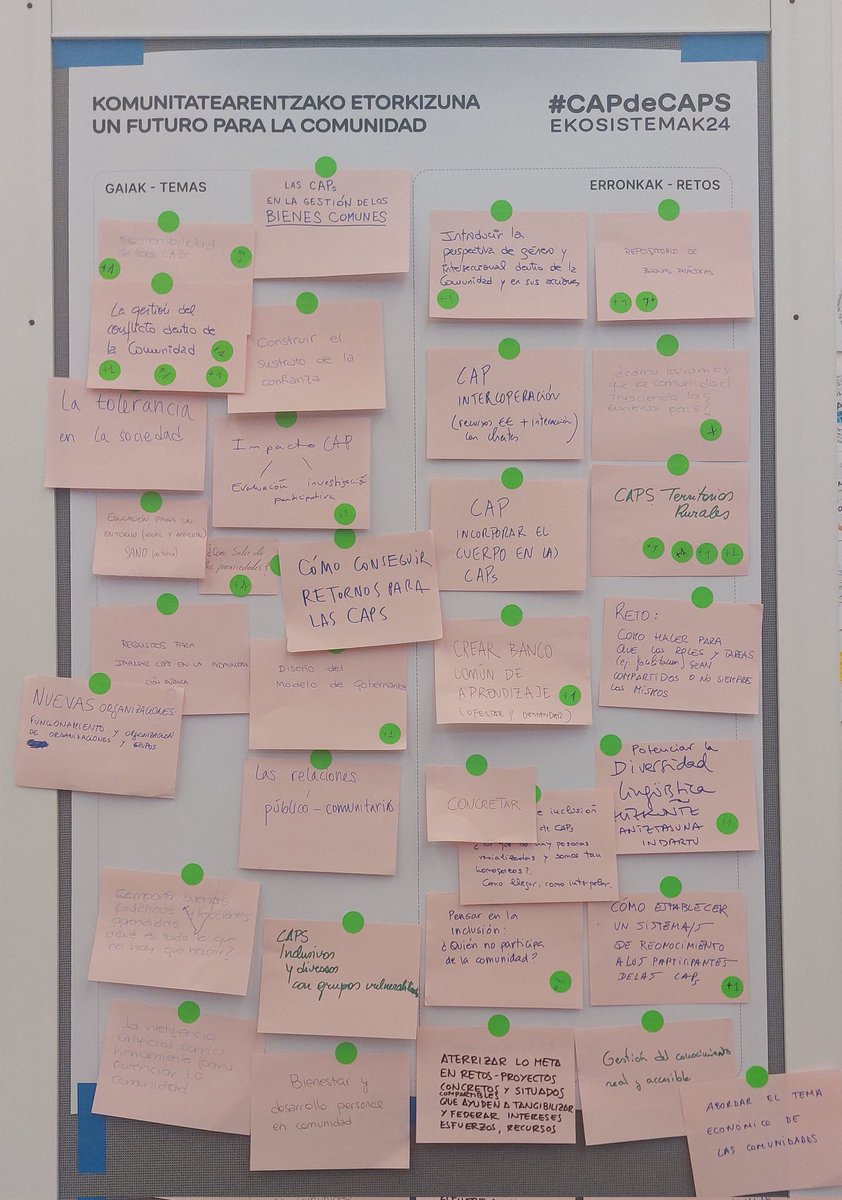 KOMUNITATEARENTZAKO ETORKIZUNA
UN FUTURO PARA LA COMUNIDAD
#CAPdeCAPS
EKOSISTEMAK24
GAIAK - TEMAS
LAS CAPs
EN LA GESTIÓN DE LOS
BIENES COMUNES
sostenibilidad
de las CAPs
+1
La gestión del
conflicto dentro de
la Comunidad
+1
+1
Construir el
sustrato de la
confianza
La tolerancia
en la sociedad
Impacto CAP
Evaluación investigación
participativa
+1
EDUCACIÓN PARA UN
ENTORNO (SOCIAL Y AMBIENTAL)
SANO
¿Cómo salir de
CÓMO CONSEGUIR
RETORNOS PARA
LAS CAPS
REQUISITOS PARA
EN LA ADMINISTRA
CIÓN PÚBLICA
Diseño del
Modelo de Gobernanza
+1
NUEVAS ORGANIZACIONES
FUNCIONAMIENTO Y ORGANIZACIÓN
DE ORGANIZACIONES Y GRUPOS
Las relaciones
público-comunitarias
Compartir buenas
prácticas y lecciones
aprendidas
¿Qué es todo lo que
no hay que hacer?
CAPS
Inclusivos
y diversos
con grupos vulnerabilizados
La inteligencia
artificial como
herramienta para
potenciar la
comunidad
Bienestar y
desarrollo personal
en comunidad
ERRONKAK - RETOS
Introducir la
perspectiva de género y
interseccional dentro de la
Comunidad y en sus acciones
+1
REPOSITORIO DE
BUENAS PRÁCTICAS
+1
CAP
INTERCOPERACIÓN
(recursos EE + interacción)
con clientes
¿Cómo logramos
que la comunidad
trascienda las
+
CAP
INCORPORAR EL
CUERPO EN LA)
CAPs
CAPS Territorios
Rurales
+1
+1
+1
CREAR BANCO
COMÚN DE
APRENDIZAJE +1
(OFERTAR // DEMANDAR)
RETO:
COMO HACER PARA
QUE LOS ROLES Y TAREAS
(ej. facilitación) SEAN
COMPARTIDOS O NO SIEMPRE
LOS MISMOS
CONCRETAR
e inclusión
de CAPs
¿Por qué no hay personas
racializadas y somos tan
homogeneos?
Como llegar, como interpelar.
Potenciar la
Diversidad
lingüística
HIZKUNTZ
ANIZTASUNA
INDARTU
+1
Pensar en la
Inclusión:
¿Quién no participa
de la comunidad?
CÓMO ESTABLECER
UN SISTEMA/S
DE REONOCIMIENTO
A LOS PARTICIPANTES
DE LAS CAPs
+1
ATERRIZAR LO META
EN RETOS-PROYECTOS
CONCRETOS Y SITUADOS
COMPARTIBLES
QUE AYUDEN A TANGIBILIZAR
Y FEDERAR INTERESES
ESFUERZOS, RECURSOS
Gestión del conocimiento
real y accesible
ABORDAR EL TEMA
ECONÓMICO DE
LAS COMUNIDADES